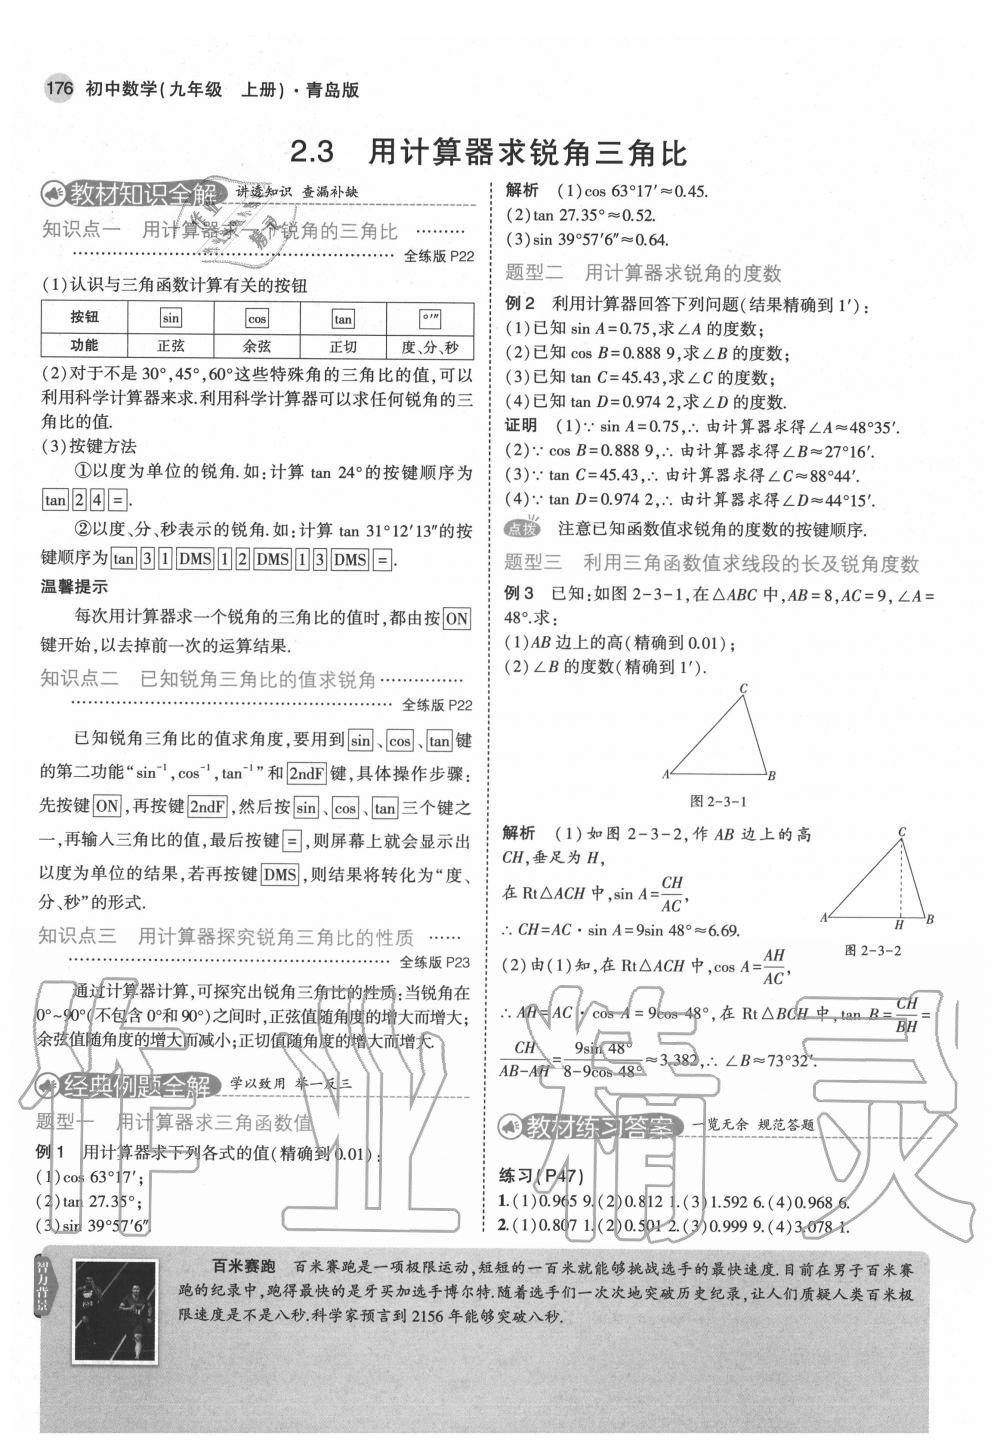 176 初中数学(九年级 上册)·青岛版
2.3 用计算器求锐角三角比
教材知识全解 讲透知识 查漏补缺
知识点一 用计算器求一个锐角的三角比 ………
………………………………………………… 全练版 P22
(1)认识与三角函数计算有关的按钮
按钮 sin cos tan °′″
功能 正弦 余弦 正切 度、分、秒
(2)对于不是 30°,45°,60°这些特殊角的三角比的值,可以
利用科学计算器来求.利用科学计算器可以求任何锐角的三
角比的值.
(3)按键方法
①以度为单位的锐角.如:计算 tan 24°的按键顺序为
tan 2 4 =.
②以度、分、秒表示的锐角.如:计算 tan 31°12′13″的按
键顺序为 tan 3 1 DMS 1 2 DMS 1 3 DMS =.
温馨提示
每次用计算器求一个锐角的三角比的值时,都由按 ON
键开始,以去掉前一次的运算结果.
知识点二 已知锐角三角比的值求锐角……………
………………………………………………… 全练版 P22
已知锐角三角比的值求角度,要用到 sin、cos、tan 键
的第二功能“sin⁻¹,cos⁻¹,tan⁻¹”和 2ndF 键,具体操作步骤:
先按键 ON,再按键 2ndF,然后按 sin、cos、tan 三个键之
一,再输入三角比的值,最后按键 =,则屏幕上就会显示出
以度为单位的结果,若再按键 DMS,则结果将转化为“度、
分、秒”的形式.
知识点三 用计算器探究锐角三角比的性质 ……
………………………………………………… 全练版 P23
通过计算器计算,可探究出锐角三角比的性质:当锐角在
0°~90°(不包含 0°和 90°)之间时,正弦值随角度的增大而增大;
余弦值随角度的增大而减小;正切值随角度的增大而增大.
经典例题全解 学以致用 举一反三
题型一 用计算器求三角函数值
例 1 用计算器求下列各式的值(精确到 0.01):
(1)cos 63°17′;
(2)tan 27.35°;
(3)sin 39°57′6″.
解析 (1)cos 63°17′≈0.45.
(2)tan 27.35°≈0.52.
(3)sin 39°57′6″≈0.64.
题型二 用计算器求锐角的度数
例 2 利用计算器回答下列问题(结果精确到 1′):
(1)已知 sin A=0.75,求∠A 的度数;
(2)已知 cos B=0.888 9,求∠B 的度数;
(3)已知 tan C=45.43,求∠C 的度数;
(4)已知 tan D=0.974 2,求∠D 的度数.
证明 (1)∵ sin A=0.75,∴ 由计算器求得∠A≈48°35′.
(2)∵ cos B=0.888 9,∴ 由计算器求得∠B≈27°16′.
(3)∵ tan C=45.43,∴ 由计算器求得∠C≈88°44′.
(4)∵ tan D=0.974 2,∴ 由计算器求得∠D≈44°15′.
点拨 注意已知函数值求锐角的度数的按键顺序.
题型三 利用三角函数值求线段的长及锐角度数
例 3 已知:如图 2-3-1,在△ABC 中,AB=8,AC=9,∠A=
48°.求:
(1)AB 边上的高(精确到 0.01);
(2)∠B 的度数(精确到 1′).
C
A B
图 2-3-1
解析 (1)如图 2-3-2,作 AB 边上的高
CH,垂足为 H,
在 Rt△ACH 中,sin A=CH/AC,
∴ CH=AC·sin A=9sin 48°≈6.69.
C
A H B
图 2-3-2
(2)由(1)知,在 Rt△ACH 中,cos A=AH/AC,
∴ AH=AC·cos A=9cos 48°,在 Rt△BCH 中,tan B=CH/BH=
CH/(AB-AH)=9sin 48°/(8-9cos 48°)≈3.382,∴ ∠B≈73°32′.
教材练习答案 一览无余 规范答题
练习(P47)
1.(1)0.965 9.(2)0.812 1.(3)1.592 6.(4)0.968 6.
2.(1)0.807 1.(2)0.501 2.(3)0.999 9.(4)3.078 1.
智力背景
百米赛跑 百米赛跑是一项极限运动,短短的一百米就能够挑战选手的最快速度.目前在男子百米赛
跑的纪录中,跑得最快的是牙买加选手博尔特.随着选手们一次次地突破历史纪录,让人们质疑人类百米极
限速度是不是八秒.科学家预言到 2156 年能够突破八秒.
作业精灵